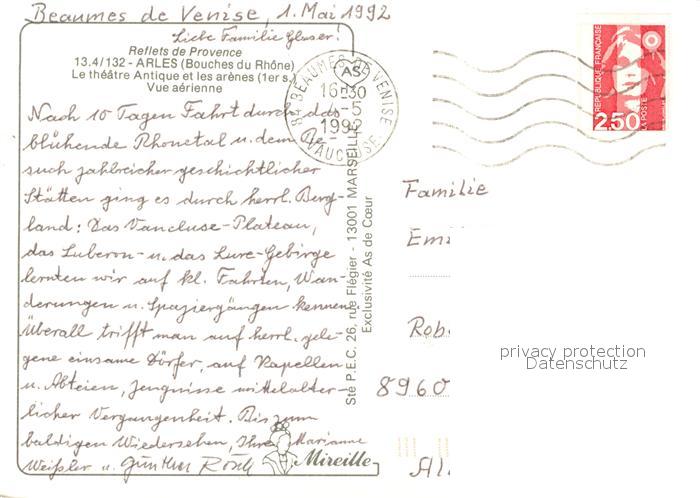 Beaumes de Venise, 1. Mai 1992
Liebe Familie Glaser!
Reflets de Provence
13.4/132 - ARLES (Bouches du Rhône)
Le théâtre Antique et les arènes (1er s.)
Vue aérienne
Nach 10 Tagen Fahrt durch das
blühende Rhonetal u. dem Be-
such zahlreicher geschichtlicher
Stätten ging es durch herrl. Berg-
land: Das Vaucluse-Plateau,
das Luberon- u. das Lure-Gebirge
lernten wir auf kl. Fahrten, Wan-
derungen u. Spaziergängen kennen.
Überall trifft man auf herrl. gele-
gene einsame Dörfer, auf Kapellen
u. Abteien, Zeugnisse mittelalter-
licher Vergangenheit. Bis zum
baldigen Wiedersehen, Ihre Marianne
Weißler u. Günther
Mireille
Sté P.E.C. 26, rue Flégier - 13001 MARSEILLE
Exclusivité As de Cœur
AS
84 BEAUMES DE VENISE
16-30
4-5
1992
VAUCLUSE
REPUBLIQUE FRANÇAISE
LA POSTE
2,50
Familie
Em
Rob
8960
Al
privacy protection
Datenschutz